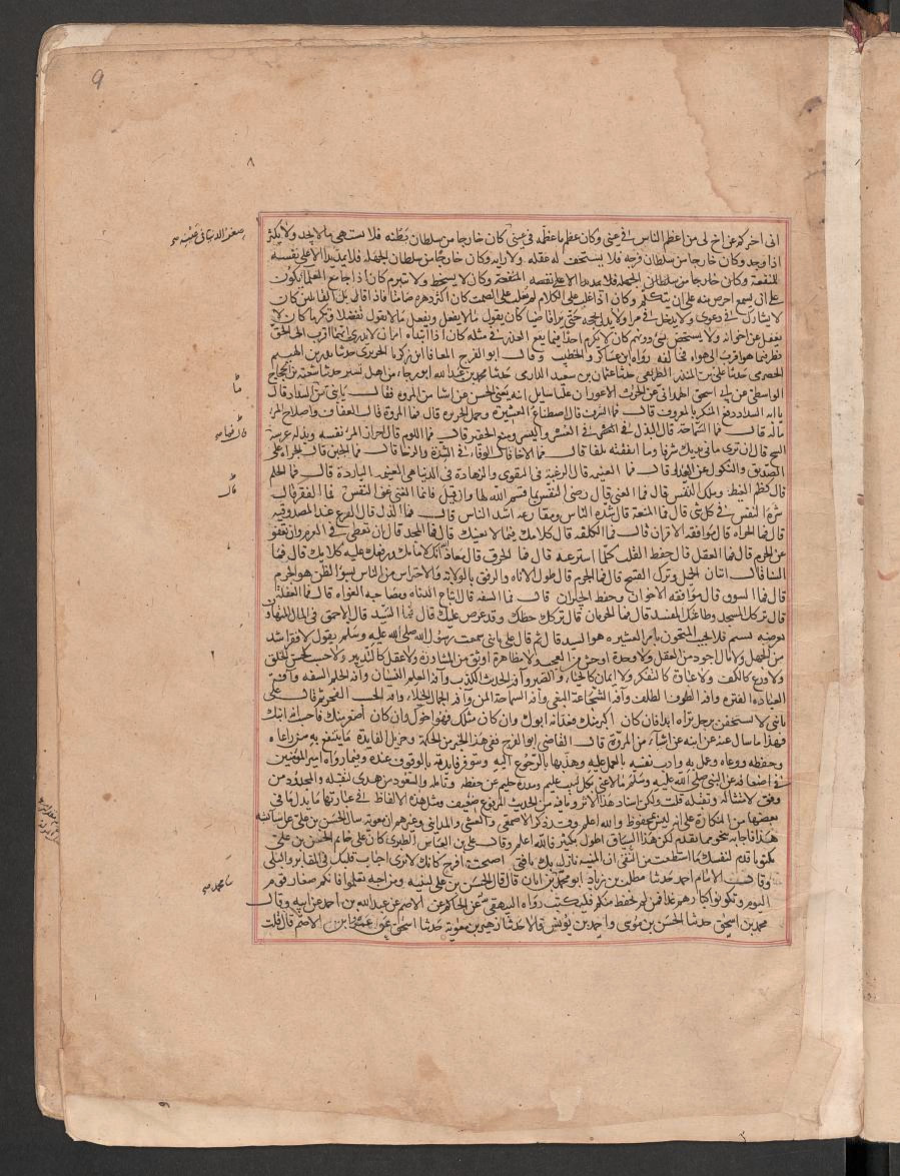 9
٨
اني اخبركم عن اخ لي من اعظم الناس في عيني وكان عظم ما عظمه في عيني كان خارجا من سلطان بطنه فلا يشتهي مالا يجد ولا يكثر
صغر الدنيا في عينه صح
اذا وجد وكان خارجا من سلطان فرجه فلا يستخف له عقله ولا رايه وكان خارجا من سلطان الجهلة فلا يمد يدا الا على نفسه
للمنفعة وكان خارجا من سلطان الجهلة فلا يمد يدا الا على نفسه المنفعة وكان لا يسخط ولا يتبرم كان اذا جامع العلما يكون
على ان يسمع احرص منه على ان يتكلم وكان اذا غلب على الكلام لم يغلب على الصمت كان اكثر دهره صامتا فاذا قال بذ القائلين كان
لا يشارك في دعوى ولا يدخل في مرا ولا يدلي بحجة حتى يرا قاضيا كان يقول ما لا يفعل ويفعل ما لا يقول تفضلا وتكرما كان لا
يغفل عن اخوانه ولا يستخص بشي دونهم كان لا يكرم احدا فيما يقع العذر في مثله كان اذا ابتداه امران لا يدري ايهما اقرب الى الحق
نظر فيما هو اقرب الى هواه فخالفه رواه ابن عساكر والخطيب وقال ابو الفرج المعافا ابن زكريا الحريري حدثنا بدر بن الهيثم
الحضرمي حدثنا علي بن المنذر الطريقي حدثنا عثمان بن سعيد الدارمي حدثنا محمد بن عبد الله ابو رجا من اهل تستر حدثنا شعبة بن الحجاج
الواسطي عن ابي اسحق الهمداني عن الحرث الاعور ان عليا سايل ابنه يعني الحسن عن اشيا من المروة فقال يا بني ما السداد قال
يا ابه السداد دفع المنكر بالمعروف قال فما الشرف قال اصطناع العشيرة وحمل الجريرة قال فما المروة قال العفاف واصلاح المرء
ماله قال فما السماحة قال البذل في العسر واليسر قال فما اللوم قال احراز المرء نفسه وبذله عرسه
قال فما الشح قال ان ترى ما في يديك شرفا وما انفقته تلفا قال فما الاخا قال الوفاء في الشدة والرخا قال فما الجبن قال الجراة على
الصديق والنكول عن العدو قال فما الغنيمة قال الرغبة في التقوى والزهادة في الدنيا هي الغنيمة الباردة قال فما الحلم
قال كظم الغيظ وملك النفس قال فما الغنى قال رضى النفس بما قسم الله لها وان قل فانما الغنى غنى النفس قال فما الفقر قال
شره النفس في كل شي قال فما المنعة قال شدة الباس ومقارعة اشد الناس قال فما الذل قال الفزع عند المصدوقة
قال فما الجراة قال موافقة الاقران قال فما الكلفة قال كلامك فيما لا يعنيك قال فما المجد قال ان تعطي في الغرم وان تعفو
عن الجرم قال فما العقل قال حفظ القلب كلما استرعيته قال فما الخرق قال معاداتك امامك ورفعك عليه كلامك قال فما
السنا قال اتيان الجميل وترك القبيح قال فما الحزم قال طول الاناة والرفق بالولاة والاحتراس من الناس بسوء الظن هو الحزم
قال فما السرو قال موافقة الاخوان وحفظ الجيران قال فما السفه قال اتباع الدناة ومصاحبة الغواة قال فما الغفلة
قال تركك المسجد وطاعتك المفسد قال فما الحرمان قال تركك حظك وقد عرض عليك قال فما السيد قال الاحمق في المال المتهاون
بعرضه يشتم فلا يجيب المتحزن بامر العشيرة هو السيد قال ثم قال علي يا بني سمعت رسول الله صلى الله عليه وسلم يقول لا فقر اشد
من الجهل ولا مال اجود من العقل ولا وحدة اوحش من العجب ولا مظاهرة اوثق من المشاورة ولا عقل كالتدبير ولا حسب كحسن الخلق
ولا ورع كالكف ولا عبادة كالتفكر ولا ايمان كالحياء والصبر وآفة الحديث الكذب وآفة العلم النسيان وآفة الحلم السفه وآفة
العبادة الفترة وآفة الظرف الصلف وآفة الشجاعة البغي وآفة السماحة المن وآفة الجمال الخيلاء وآفة الحب الفخر ثم قال علي
يا بني لا تستخفن برجل تراه ابدا فان كان اكبر منك فعد انه ابوك وان كان مثلك فهو اخوك وان كان اصغر منك فاحسب انه ابنك
فهذا ما سال عنه عن ابنه عن اشياء من المروة قال القاضي ابو الفرج ففي هذا الخبر من الحكمة وجزيل الفايدة ما ينتفع به من راعاه
وحفظه ووعاه وعمل به وادب نفسه بالعمل عليه وهذبها بالرجوع اليه وتتوفر فايدته بالوقوف عنده وفيما رواه امير المومنين
في اضعافه عن النبي صلى الله عليه وسلم ما لا غنى لكل لبيب عليم ومدره حكيم عن حفظه وتامله والمسعود من هدي لتقبله والمجدود من
وفق لامتثاله وتقبله قلت ولكن اسناد هذا الاثر وما فيه من الحديث المرفوع ضعيف ومثل هذه الالفاظ في عبارتها ما يدل ما في
بعضها من النكارة على انه ليس بمحفوظ والله اعلم وقد ذكر الاصمعي والعتبي والمدايني وغيرهم ان معوية سال الحسن بن علي عن اشيا تشبه
هذا فاجابه بنحو مما تقدم لكن هذا السياق اطول بكثير فالله اعلم وقال علي بن العباس الطبري كان على خاتم الحسن بن علي
مكتوبا قدم لنفسك ما استطعت من التقى ان المنية نازل بك يا فتى اصبحت ذا فرح كانك لا ترى احباب قلبك في المقابر والبلى
وقال الامام احمد حدثنا مطلب بن زياد ابو محمد ثنا محمد بن ابان قال قال الحسن بن علي لبنيه وبني اخيه تعلموا فانكم صغار قوم
اليوم وتكونوا كبارهم غدا فمن لم يحفظ منكم فليكتب رواه البيهقي عن الحاكم عن الاصم عن عبد الله بن احمد عن ابيه وقال
محمد بن اسحق حدثنا الحسن بن موسى واحمد بن يونس قالا حدثنا زهير بن معوية حدثنا اسحق عن عمرو بن الاصم قال قلت